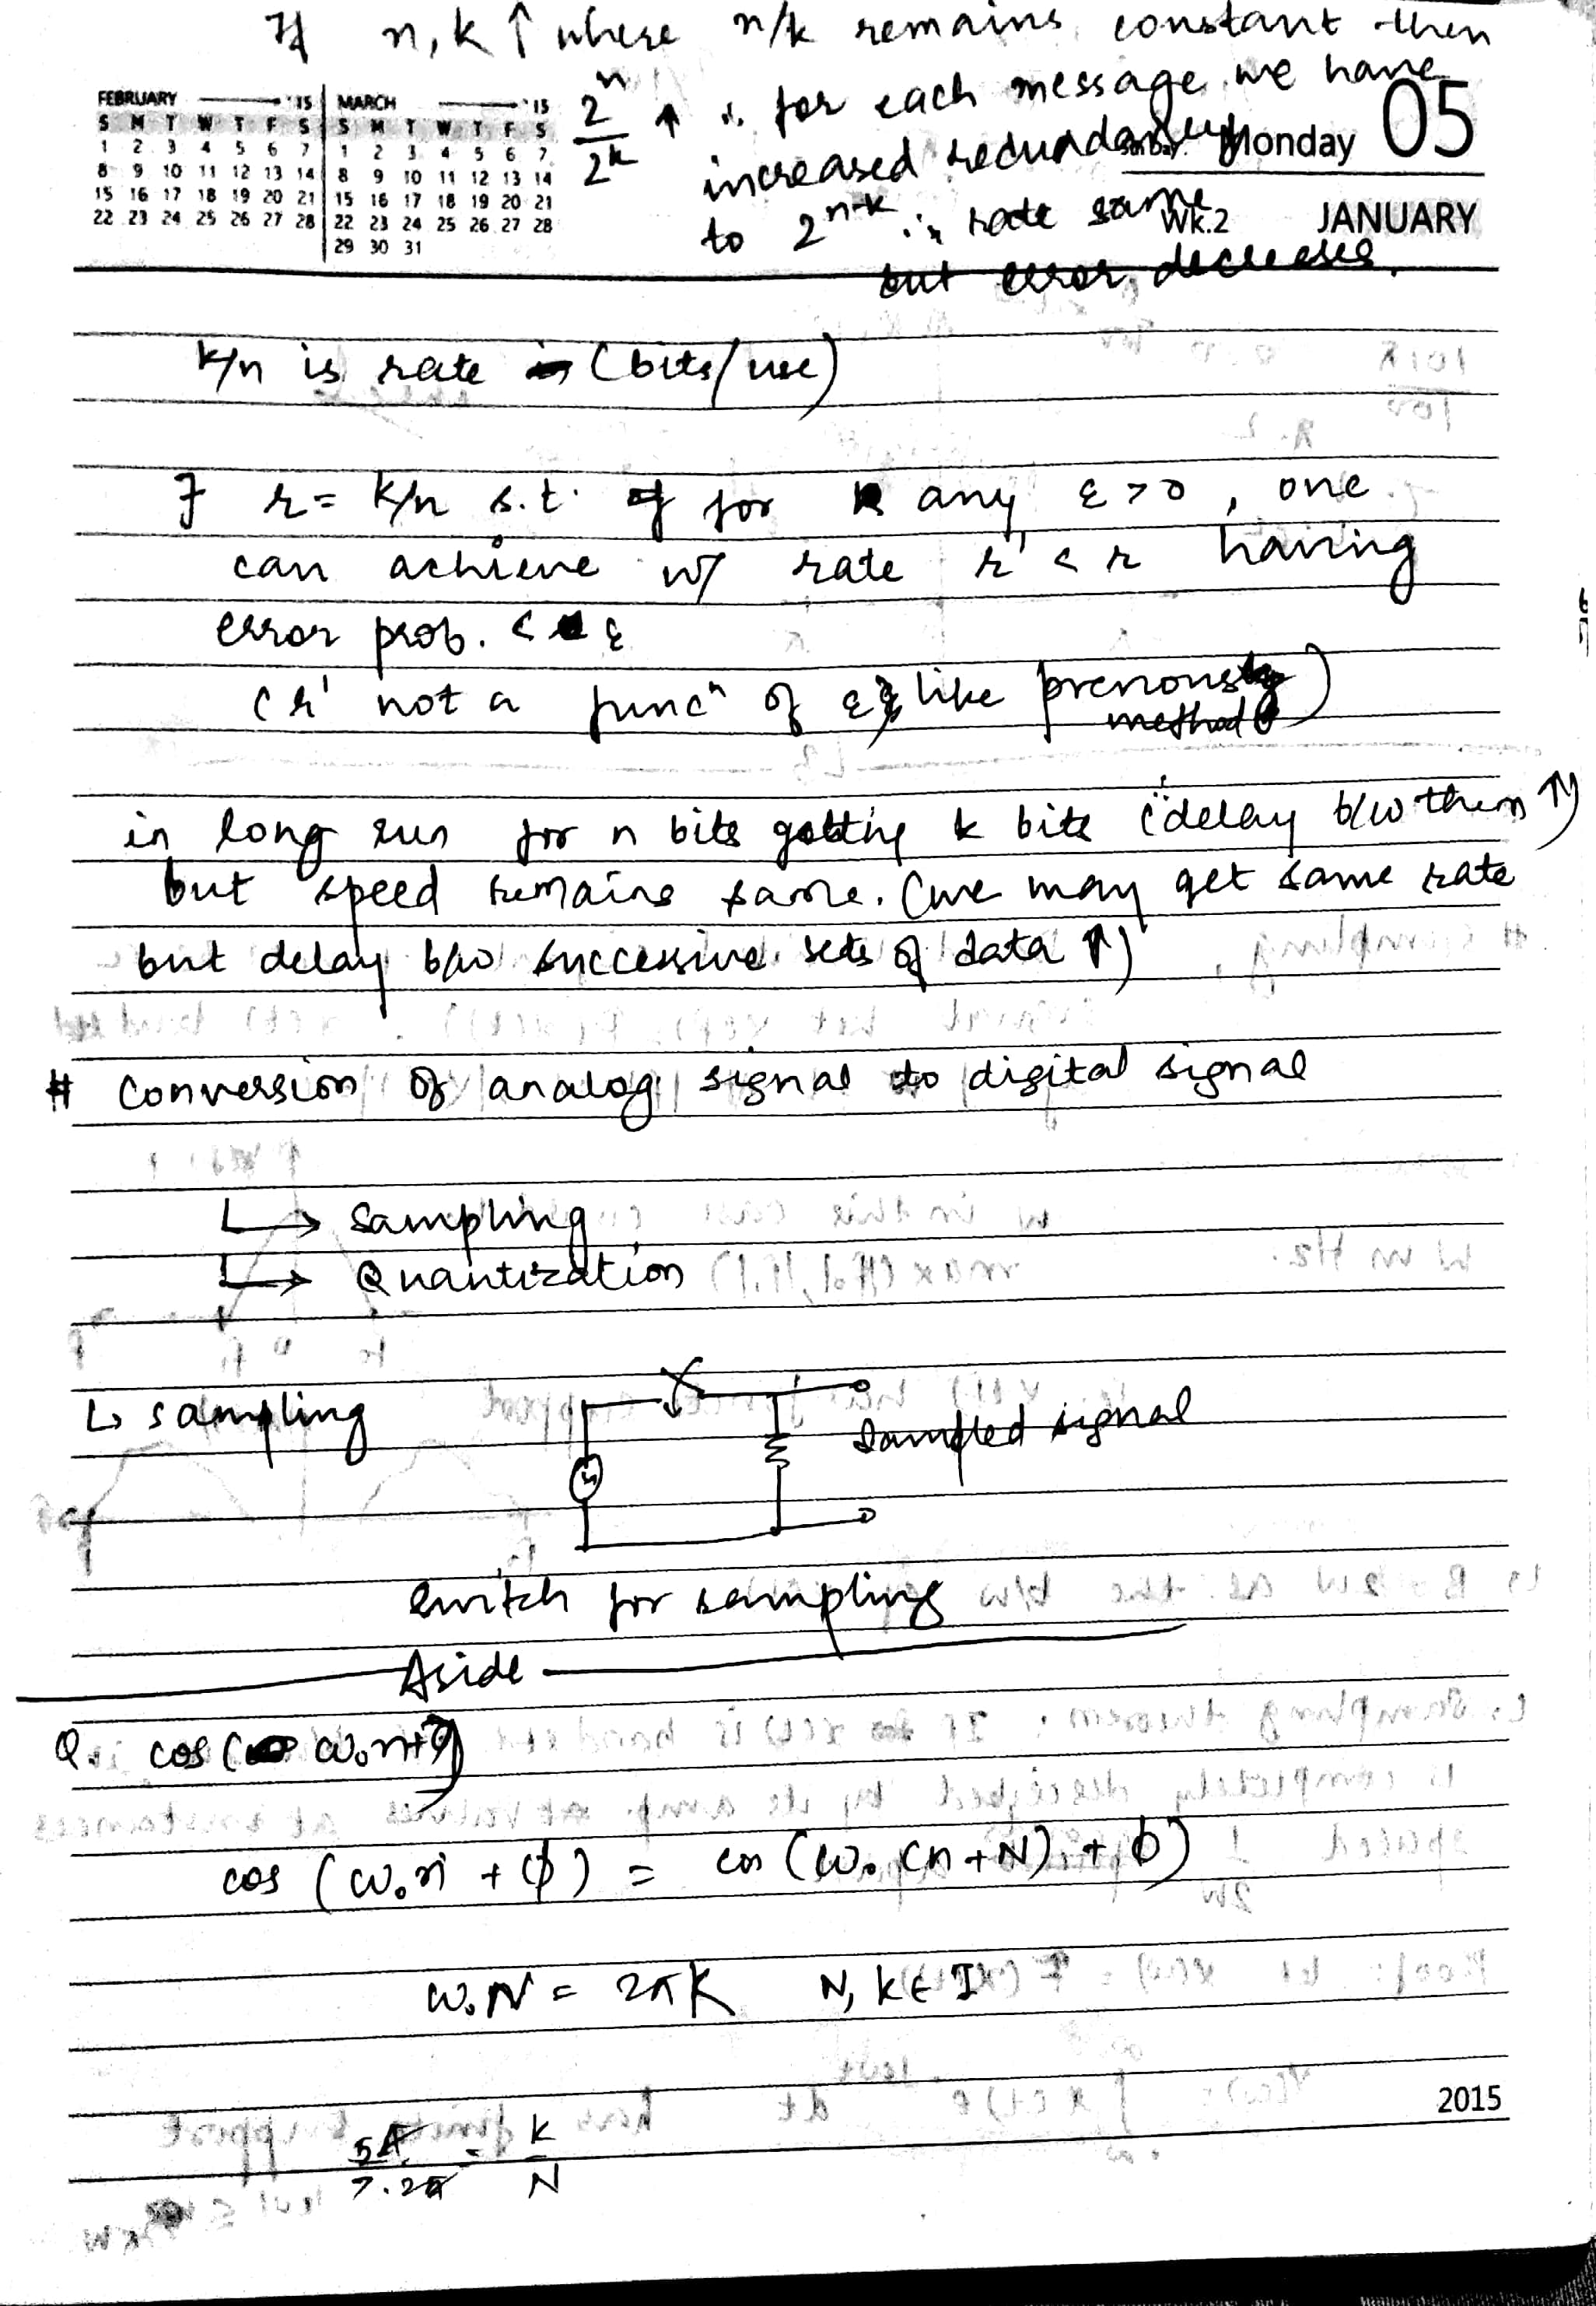 If n, k ↑ where n/k remains constant then
2^n / 2^k ↑ ∴ for each message we have
increased redundancy
to 2^{n-k} ∴ rate same
but error decreases.
FEBRUARY '15 MARCH '15
S M T W T F S S M T W T F S
1 2 3 4 5 6 7 1 2 3 4 5 6 7
8 9 10 11 12 13 14 8 9 10 11 12 13 14
15 16 17 18 19 20 21 15 16 17 18 19 20 21
22 23 24 25 26 27 28 22 23 24 25 26 27 28
29 30 31
Monday 05
Wk.2 JANUARY
k/n is rate (bits/use)
∃ r = k/n s.t. for any ε > 0, one
can achieve w/ rate r' < r having
error prob. < ε
(r' not a funcⁿ of ε like previous
method)
in long run for n bits getting k bits (delay b/w them ↑)
but speed remains same. (we may get same rate
but delay b/w successive sets of data ↑)
# Conversion of analog signal to digital signal
↳ Sampling
↳ Quantization
↳ sampling
Sampled signal
switch for sampling
Aside
Q. cos(ω₀n+φ)
cos (ω₀n + φ) = cos (ω₀(n+N) + φ)
ω₀N = 2πK N, K ∈ I
5π / 7.2π = K / N
2015